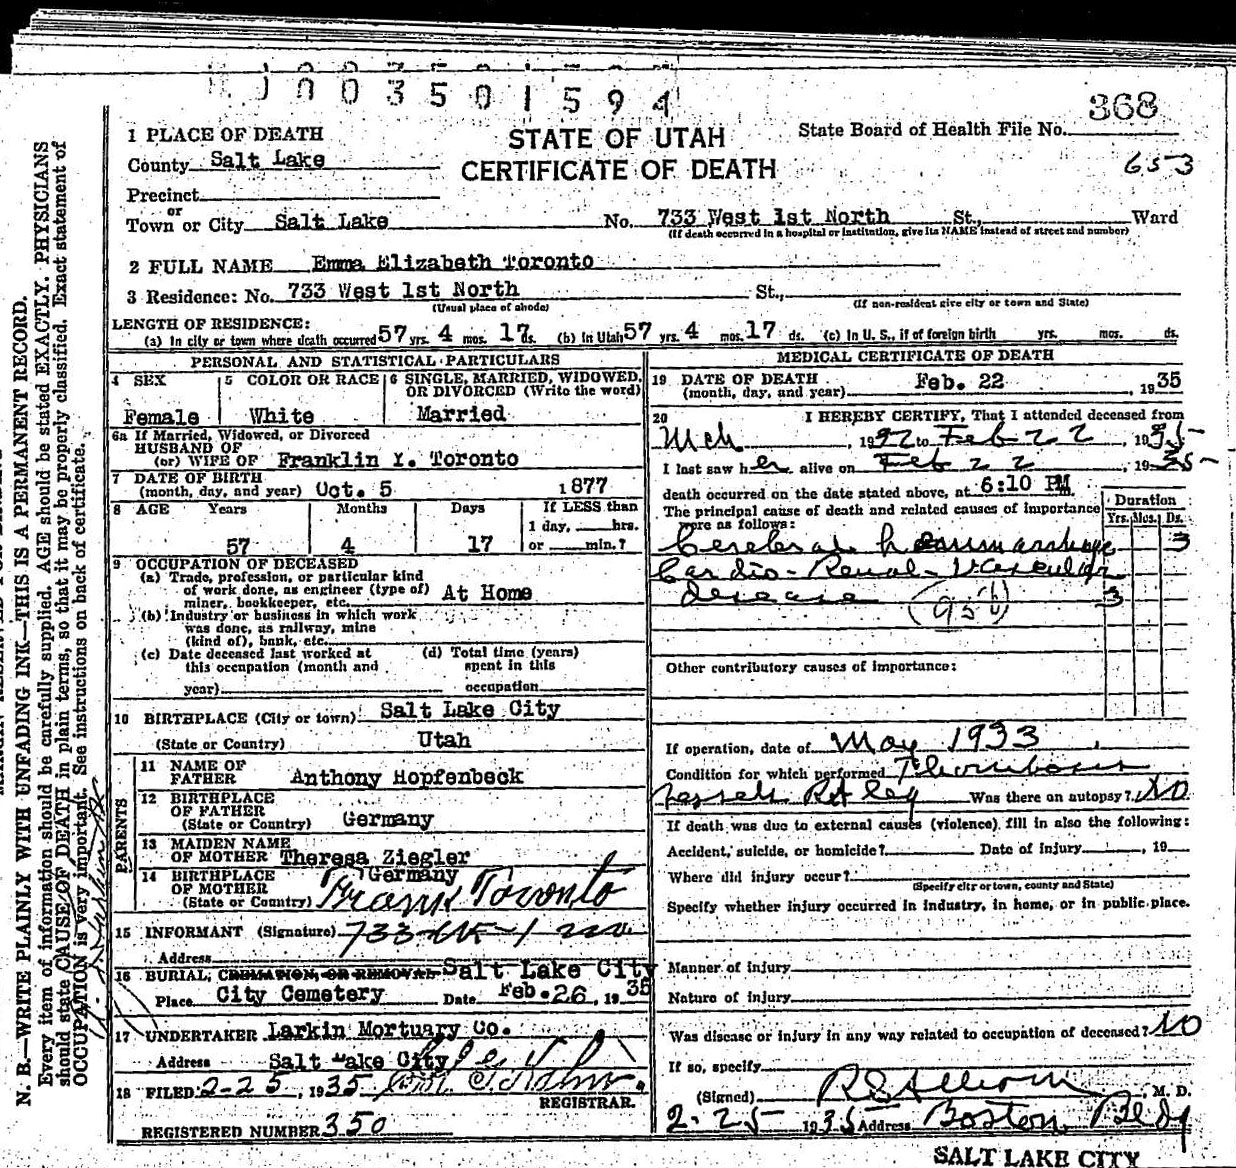 1003501594
368
STATE OF UTAH
CERTIFICATE OF DEATH
State Board of Health File No.
653
1 PLACE OF DEATH
County Salt Lake
Precinct
or
Town or City Salt Lake No. 733 West 1st North St., Ward
(If death occurred in a hospital or institution, give its NAME instead of street and number)
2 FULL NAME Emma Elizabeth Toronto
3 Residence: No. 733 West 1st North St.,
(Usual place of abode) (If non-resident give city or town and State)
LENGTH OF RESIDENCE:
(a) In city or town where death occurred 57 yrs. 4 mos. 17 ds. (b) In Utah 57 yrs. 4 mos. 17 ds. (c) In U. S., if of foreign birth yrs. mos. ds.
PERSONAL AND STATISTICAL PARTICULARS
4 SEX 5 COLOR OR RACE 6 SINGLE, MARRIED, WIDOWED, OR DIVORCED (Write the word)
Female White Married
6a If Married, Widowed, or Divorced
HUSBAND OF
(or) WIFE OF Franklin Y. Toronto
7 DATE OF BIRTH
(month, day, and year) Oct. 5 1877
8 AGE Years Months Days If LESS than
1 day, hrs.
57 4 17 or min.?
9 OCCUPATION OF DECEASED
(a) Trade, profession, or particular kind
of work done, as engineer (type of)
miner, bookkeeper, etc. At Home
(b) Industry or business in which work
was done, as railway, mine
(kind of), bank, etc.
(c) Date deceased last worked at
this occupation (month and
year)
(d) Total time (years)
spent in this
occupation
10 BIRTHPLACE (City or town) Salt Lake City
(State or Country) Utah
PARENTS
11 NAME OF
FATHER Anthony Hopfenbeck
12 BIRTHPLACE
OF FATHER
(State or Country) Germany
13 MAIDEN NAME
OF MOTHER Theresa Ziegler
14 BIRTHPLACE
OF MOTHER
(State or Country) Germany
Frank Toronto
15 INFORMANT (Signature) 733
Address
16 BURIAL, CREMATION, OR REMOVAL Salt Lake City
Place City Cemetery Date Feb. 26, 1935
17 UNDERTAKER Larkin Mortuary Co.
Address Salt Lake City
18 FILED 2-25, 1935
REGISTRAR.
REGISTERED NUMBER 350
MEDICAL CERTIFICATE OF DEATH
19 DATE OF DEATH
(month, day, and year) Feb. 22, 1935
20 I HEREBY CERTIFY, That I attended deceased from
Mch, 19 to Feb 22, 1935
I last saw her alive on Feb 22, 1935
death occurred on the date stated above, at 6:10 PM.
The principal cause of death and related causes of importance
were as follows:
Duration
Yrs. Mos. Ds.
Cerebral hemorrhage 3
Cardio-Renal-Vascular
disease 3
(95 b)
Other contributory causes of importance:
If operation, date of May 1933
Condition for which performed
Vessels Rt leg Was there an autopsy? No
If death was due to external causes (violence) fill in also the following:
Accident, suicide, or homicide? Date of injury, 19
Where did injury occur?
(Specify city or town, county and State)
Specify whether injury occurred in industry, in home, or in public place.
Manner of injury
Nature of injury
Was disease or injury in any way related to occupation of deceased? No
If so, specify
(Signed) M. D.
2-25 1935 Address Boston Bldg
SALT LAKE CITY
N. B.—WRITE PLAINLY WITH UNFADING INK—THIS IS A PERMANENT RECORD.
Every item of information should be carefully supplied. AGE should be stated EXACTLY. PHYSICIANS
should state CAUSE OF DEATH in plain terms, so that it may be properly classified. Exact statement of
OCCUPATION is very important. See instructions on back of certificate.